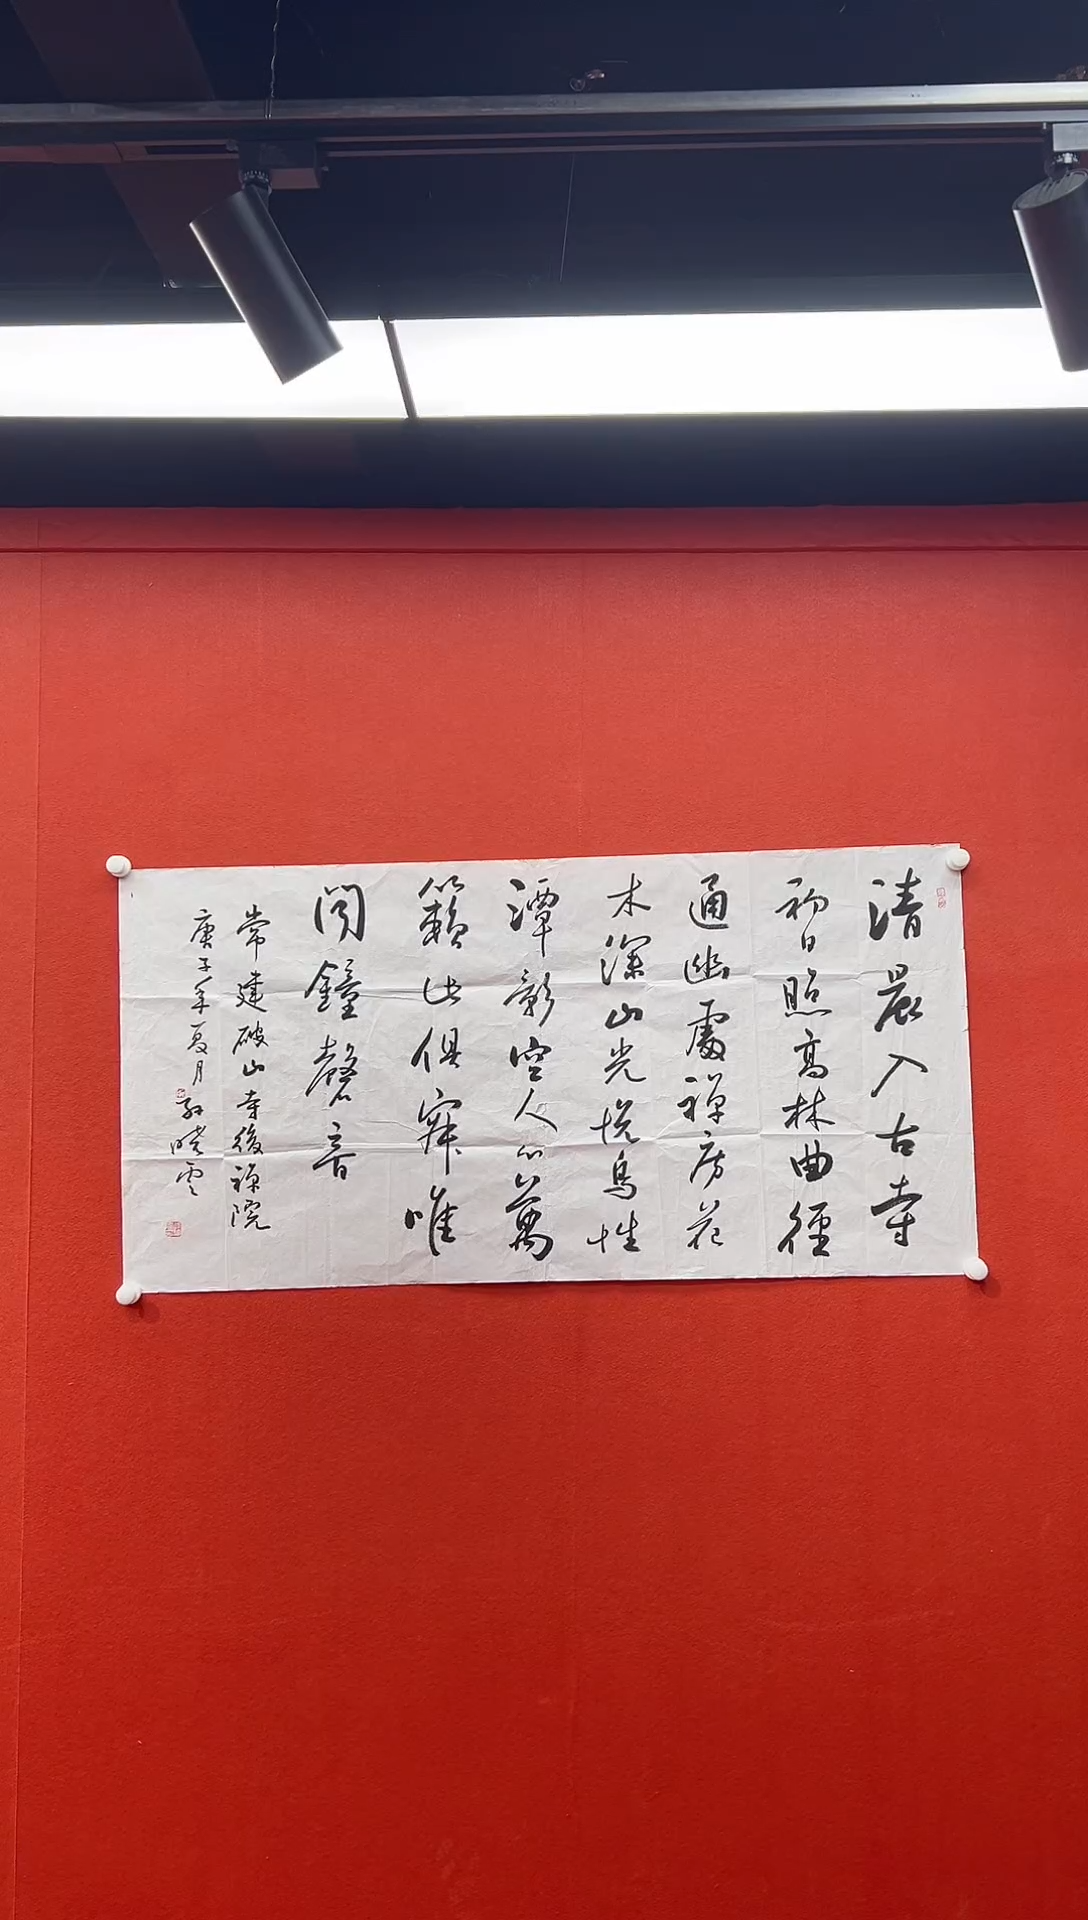 清晨入古寺
初日照高林曲徑
通幽處禪房花
木深山光悅鳥性
潭影空人心萬
籟此俱寂惟
聞鐘磬音
常建破山寺後禪院
庚子年夏月孫曉雲